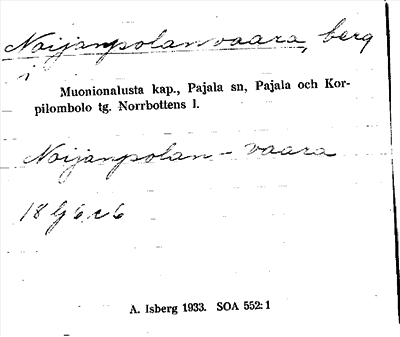 Noijanpolanvaara, berg
i
Muonionalusta kap., Pajala sn, Pajala och Kor-
pilombolo tg. Norrbottens l.
Noijanpolan-vaara
18
A. Isberg 1933. SOA 552:1